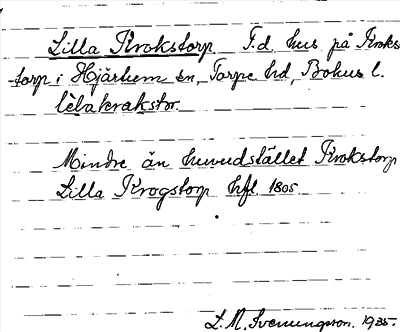 Lilla Krokstorp F.d. hus på Kroks-
torp i Hjärtum sn, Torpe hd, Bohus l.
lèlakrakstor
Mindre än huvudstället Krokstorp
Lilla Krogstorp hfl 1805.
L. M. Svenungsson. 1935.